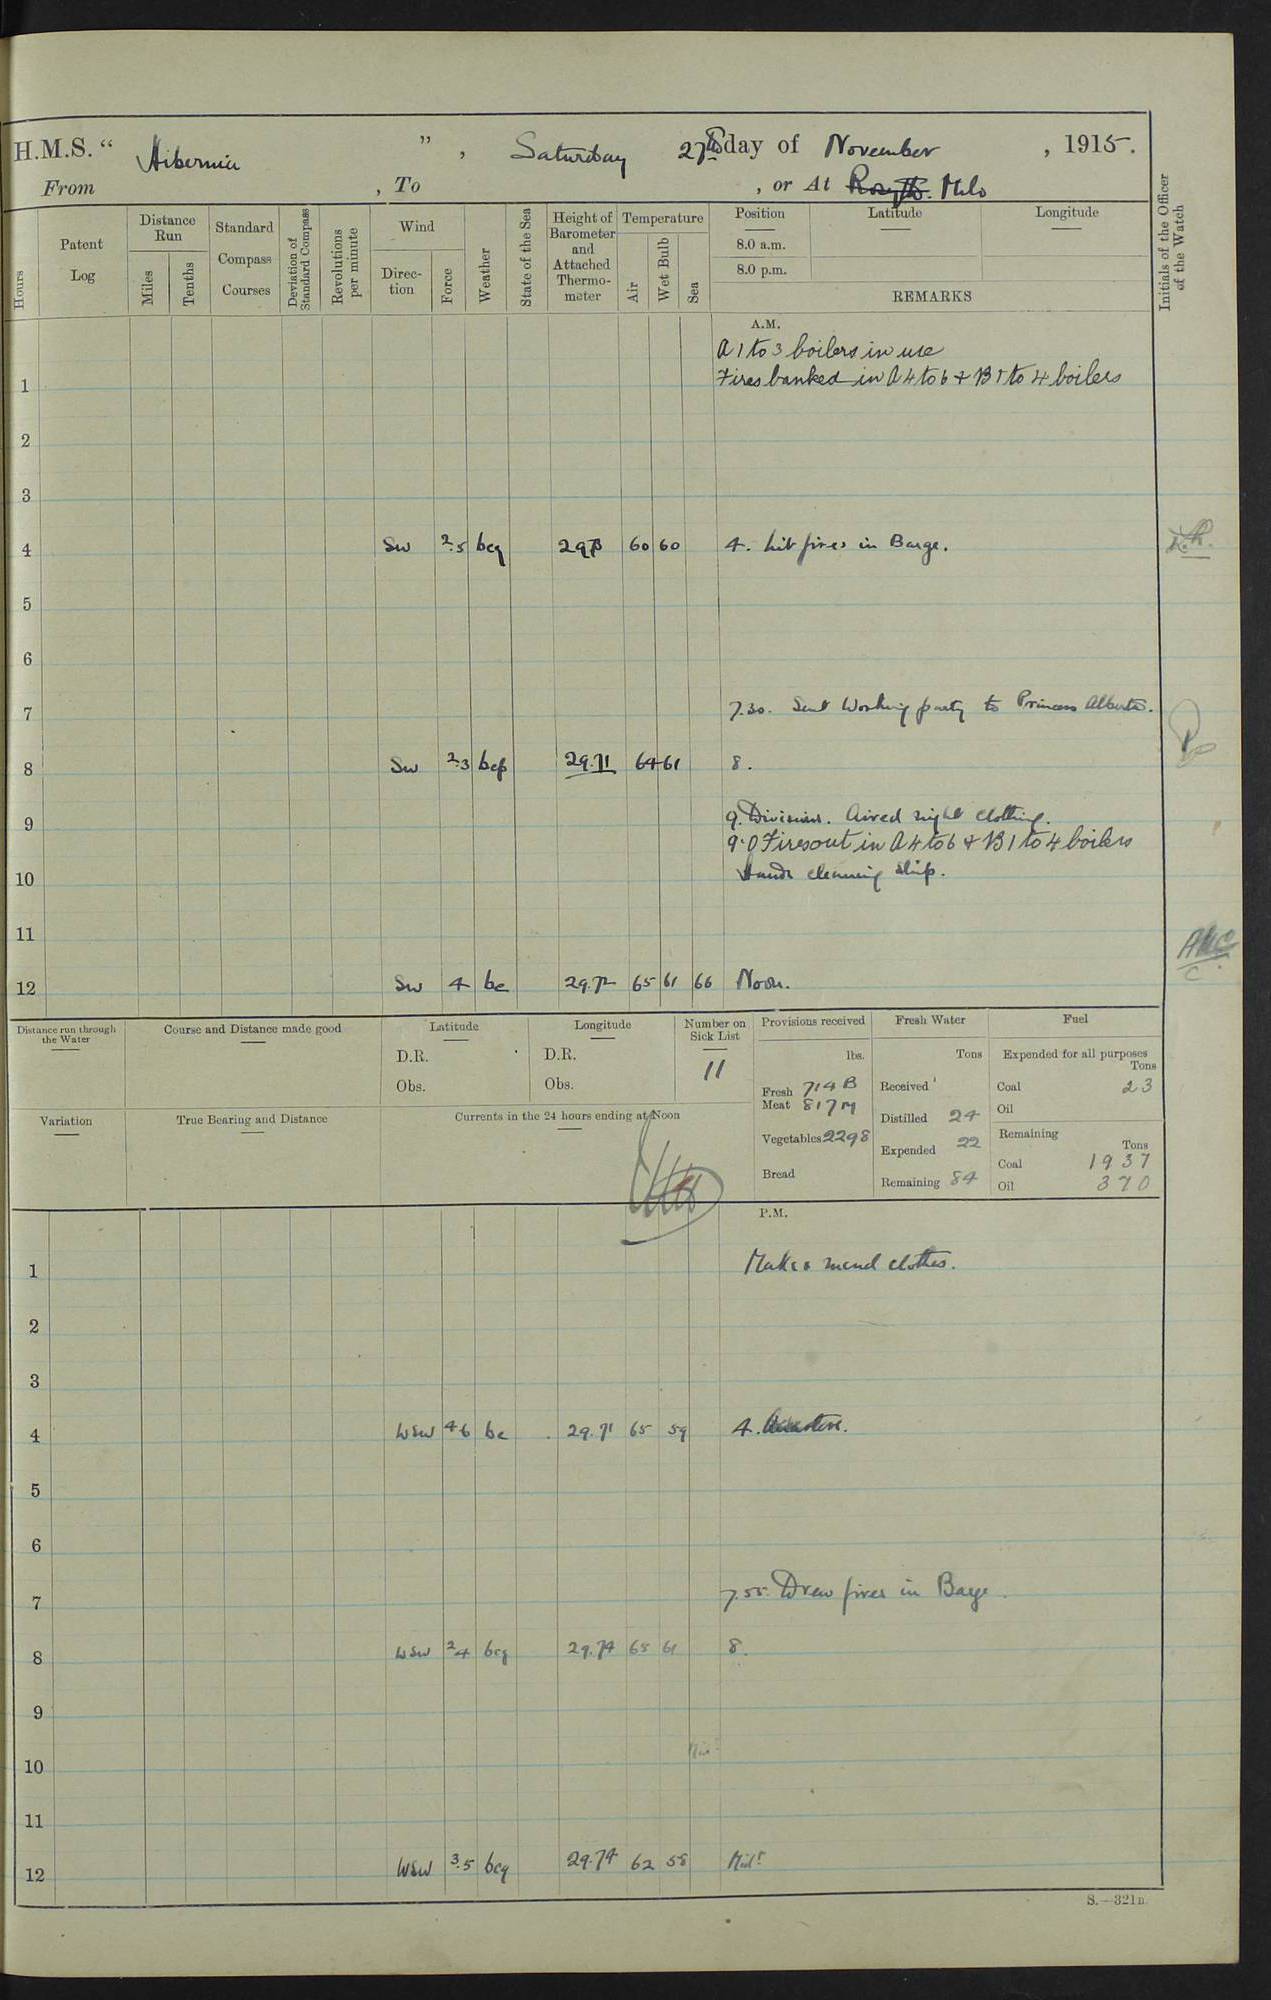 H.M.S. “ Hibernia ” , Saturday 27th day of November , 1915.
From , To , or At Rosyth. Milo
Hours
Patent Log
Distance Run
Miles
Tenths
Standard Compass Courses
Deviation of Standard Compass
Revolutions per minute
Wind
Direction
Force
Weather
State of the Sea
Height of Barometer and Attached Thermometer
Temperature
Air
Wet Bulb
Sea
Position
8.0 a.m.
8.0 p.m.
Latitude
Longitude
REMARKS
Initials of the Officer of the Watch
A.M.
A 1 to 3 boilers in use
1 Fires banked in A 4 to 6 + B 1 to 4 boilers
2
3
4 SW 2.5 bcq 60 60 4. Lit fires in Barge.
5
6
7 7.30. Sent Working party to Princess Alberta.
8 SW 2.3 29.71 64 61 8.
9 9. Divisions. Aired night clothing.
9.0 Fires out in A 4 to 6 + B 1 to 4 boilers
10 Hands cleaning ship.
11
12 SW 4 bc 29.72 65 61 66 Noon.
Distance run through the Water
Course and Distance made good
Latitude
D.R.
Obs.
Longitude
D.R.
Obs.
Number on Sick List
11
Provisions received
lbs.
Fresh Meat 714 B
817 M
Vegetables 2298
Bread
Fresh Water
Tons
Received
Distilled 24
Expended 22
Remaining 84
Fuel
Expended for all purposes
Tons
Coal 23
Oil
Remaining
Tons
Coal 1937
Oil 370
Variation
True Bearing and Distance
Currents in the 24 hours ending at Noon
P.M.
1 Make & mend clothes.
2
3
4 WSW 4.6 bc 29.71 65 59 4.
5
6
7 7.55. Drew fires in Barge.
8 WSW 2.4 bcq 29.74 65 61 8.
9
10
11
12 WSW 3.5 bcq 29.74 62 58 Midt
S.—321B.